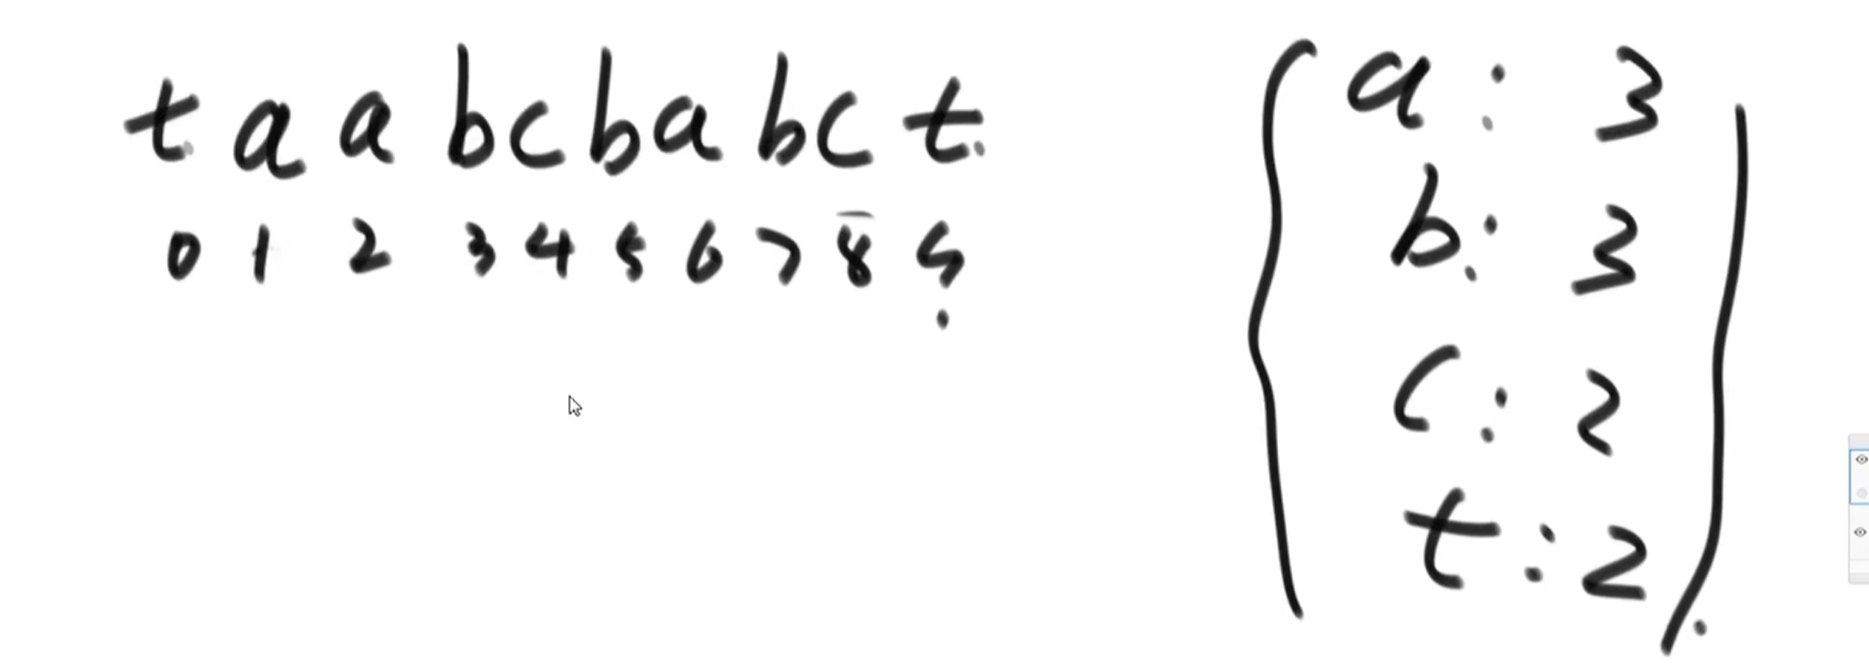 t a a b c b a b c t
0 1 2 3 4 5 6 7 8 9
{ a : 3
b : 3
c : 2
t : 2 }